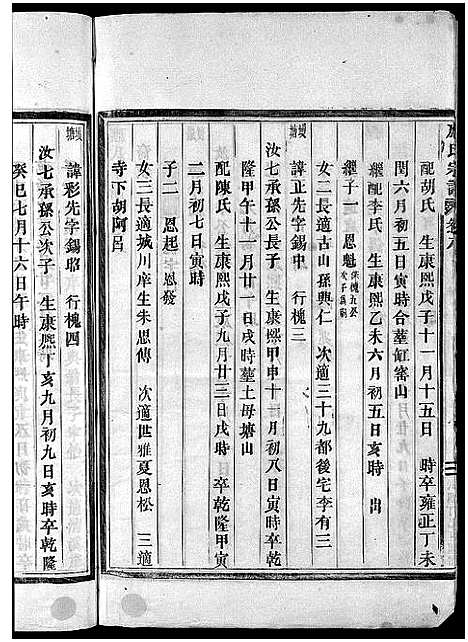 氏宗譜
配胡氏 生康熙戊子十一月十五日 時卒雍正丁未
閏六月初五日寅時合葬缸窰山
繼配李氏 生康熙乙未六月初五日亥時 出
繼子一 恩魁 係槐五公次子為嗣
女二長適古山孫興仁 次適三十九都後宅李有三
塘 諱正先字錫中 行槐三
汝七承孫公長子 生康熙甲申十一月初八日寅時卒乾
隆甲午十一月廿一日戌時葬土母塘山
配陳氏 生康熙戊子九月廿三日戌時 卒乾隆甲寅
二月初七日寅時
子二 恩起 恩發
女三長適城川庠生朱思傳 次適世雅夏恩松 三適
寺下胡阿呂
塘 諱彩先字錫昭 行槐四
汝七承孫公次子 生康熙丁亥九月初九日亥時卒乾隆
癸巳七月十六日午時